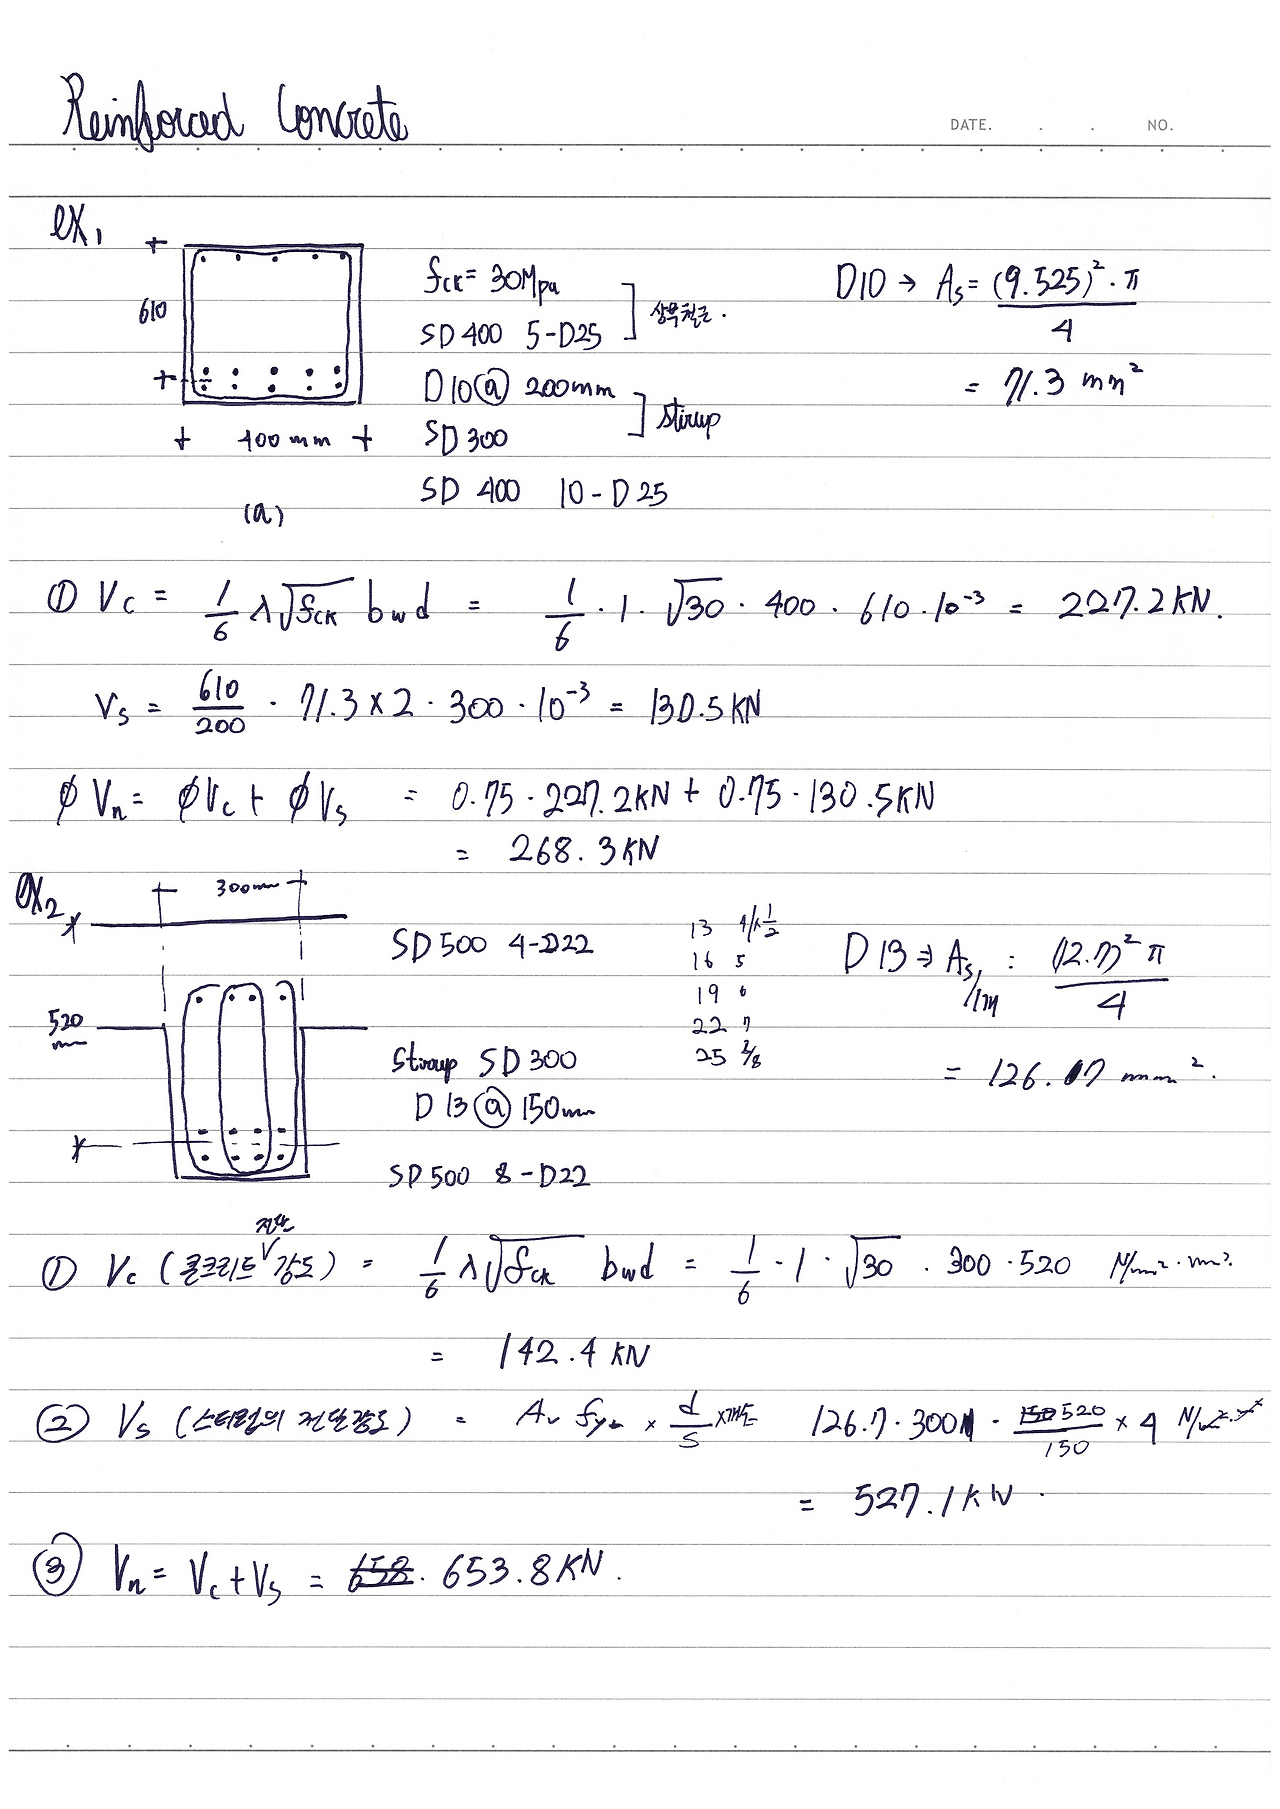 Reinforced Concrete
DATE. . . NO.
ex1
610
400mm
(a)
fck = 30Mpa
SD 400 5-D25 ] 상부철근.
D10@ 200mm
SD 300 ] stirup
SD 400 10-D25
D10 → As = (9.525)²·π / 4
= 71.3 mm²
① Vc = 1/6 λ√fck bwd = 1/6 · 1 · √30 · 400 · 610 · 10⁻³ = 227.2KN.
Vs = 610/200 · 71.3 × 2 · 300 · 10⁻³ = 130.5KN
φVn = φVc + φVs = 0.75 · 227.2KN + 0.75 · 130.5KN
= 268.3KN
ex2
300mm
520 mm
SD500 4-D22
Stirrup SD300
D13@150mm
SD500 8-D22
13 4/
16 5
19 6
22 7
25 8/8
D13 ⇒ As/1개 : (12.7)²π / 4
= 126.7 mm².
① Vc (콘크리트 전단 강도) = 1/6 λ√fck bwd = 1/6 · 1 · √30 · 300 · 520 N/mm²·mm².
= 142.4 KN
② Vs (스터럽의 전단강도) = Av fyt × d/s ×개수 126.7 · 300 · 520/150 × 4
= 527.1KN.
③ Vn = Vc + Vs = 658. 653.8KN.